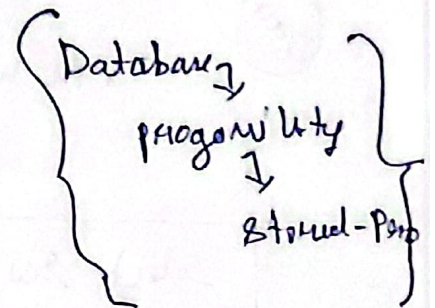 Database
progamility
Stored-Pro